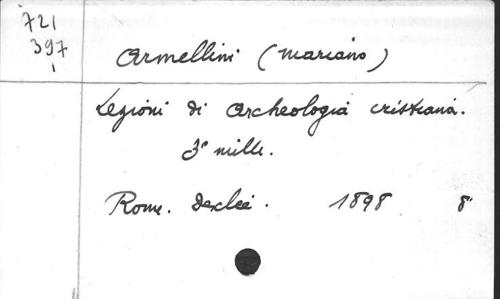 721
397
1
Armellini (Mariano)
Lezioni di Archeologia cristiana.
3e mille.
Rome. Desclée. 1898 8°